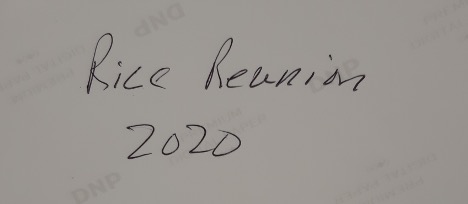 Rice Reunion
2020
DNP
DNP
DNP